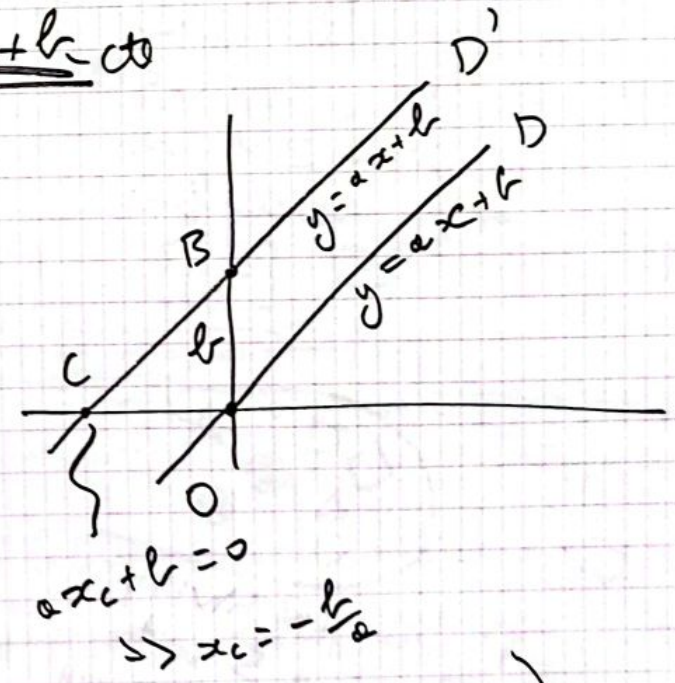 +b = cte
D'
D
y=ax+b
y=ax+b
B
b
C
O
axc+b=0
>> xc=-b/a